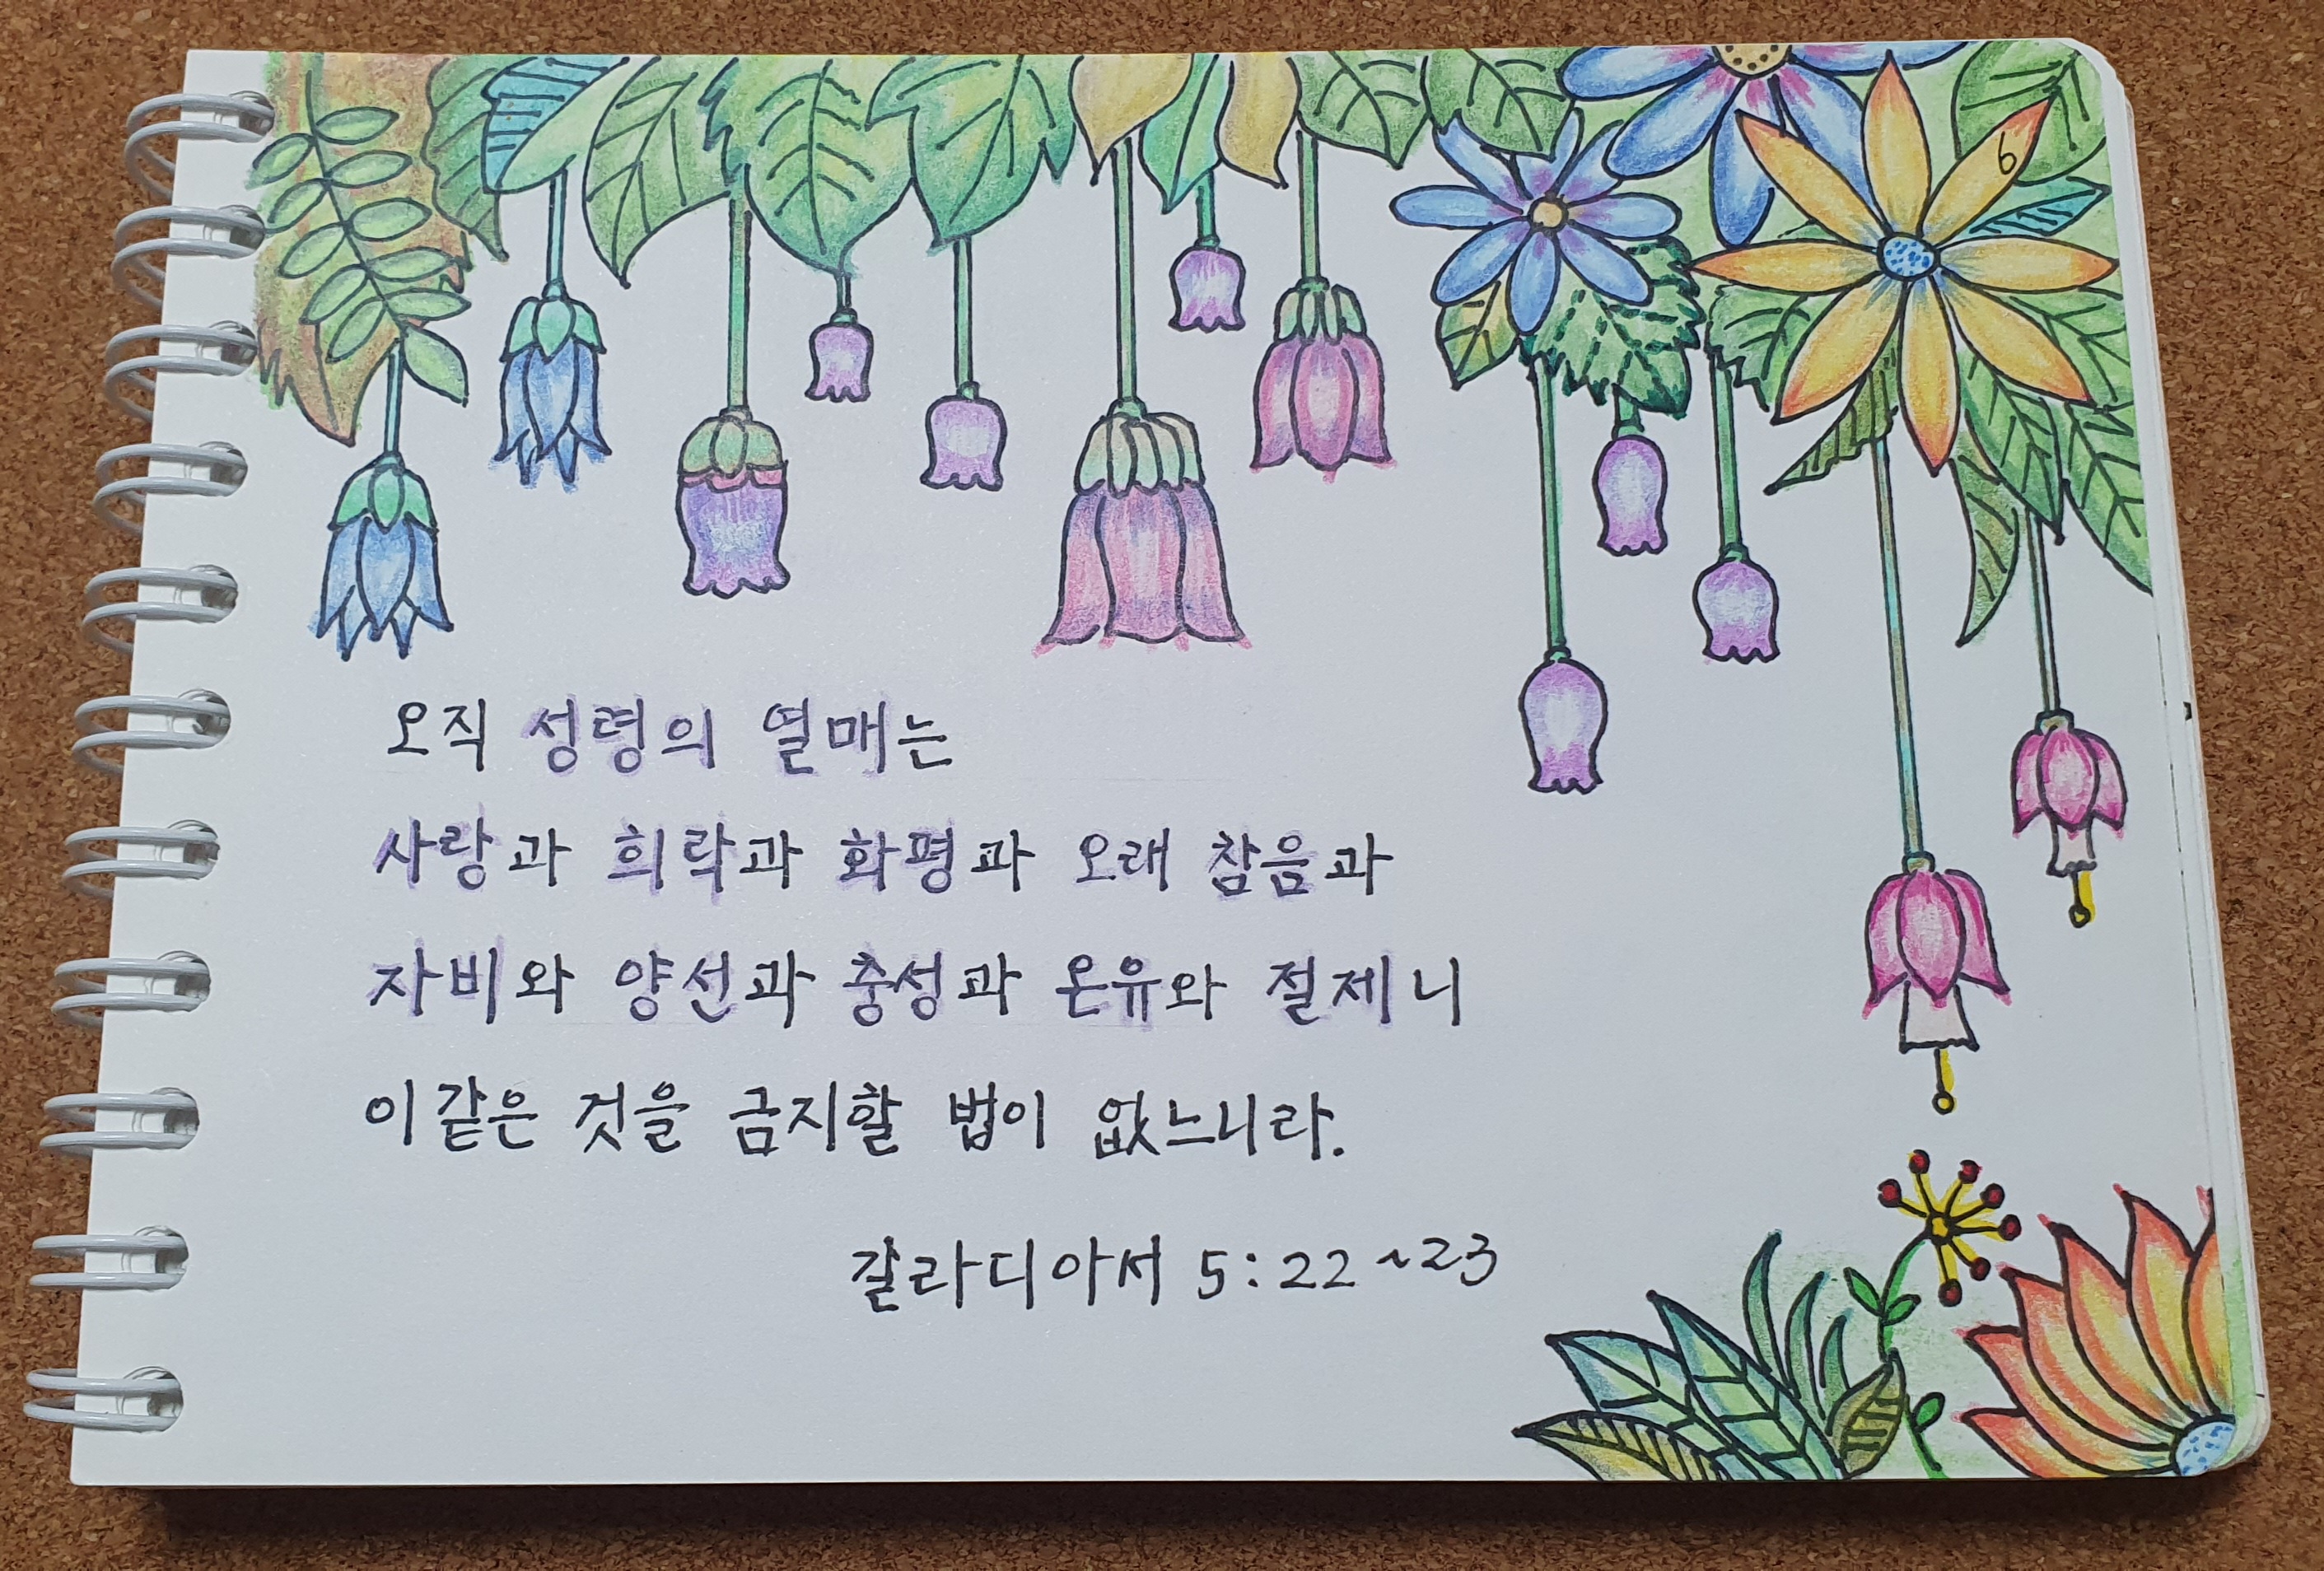 6
오직 성령의 열매는
사랑과 희락과 화평과 오래 참음과
자비와 양선과 충성과 온유와 절제니
이같은 것을 금지할 법이 없느니라.
갈라디아서 5:22~23